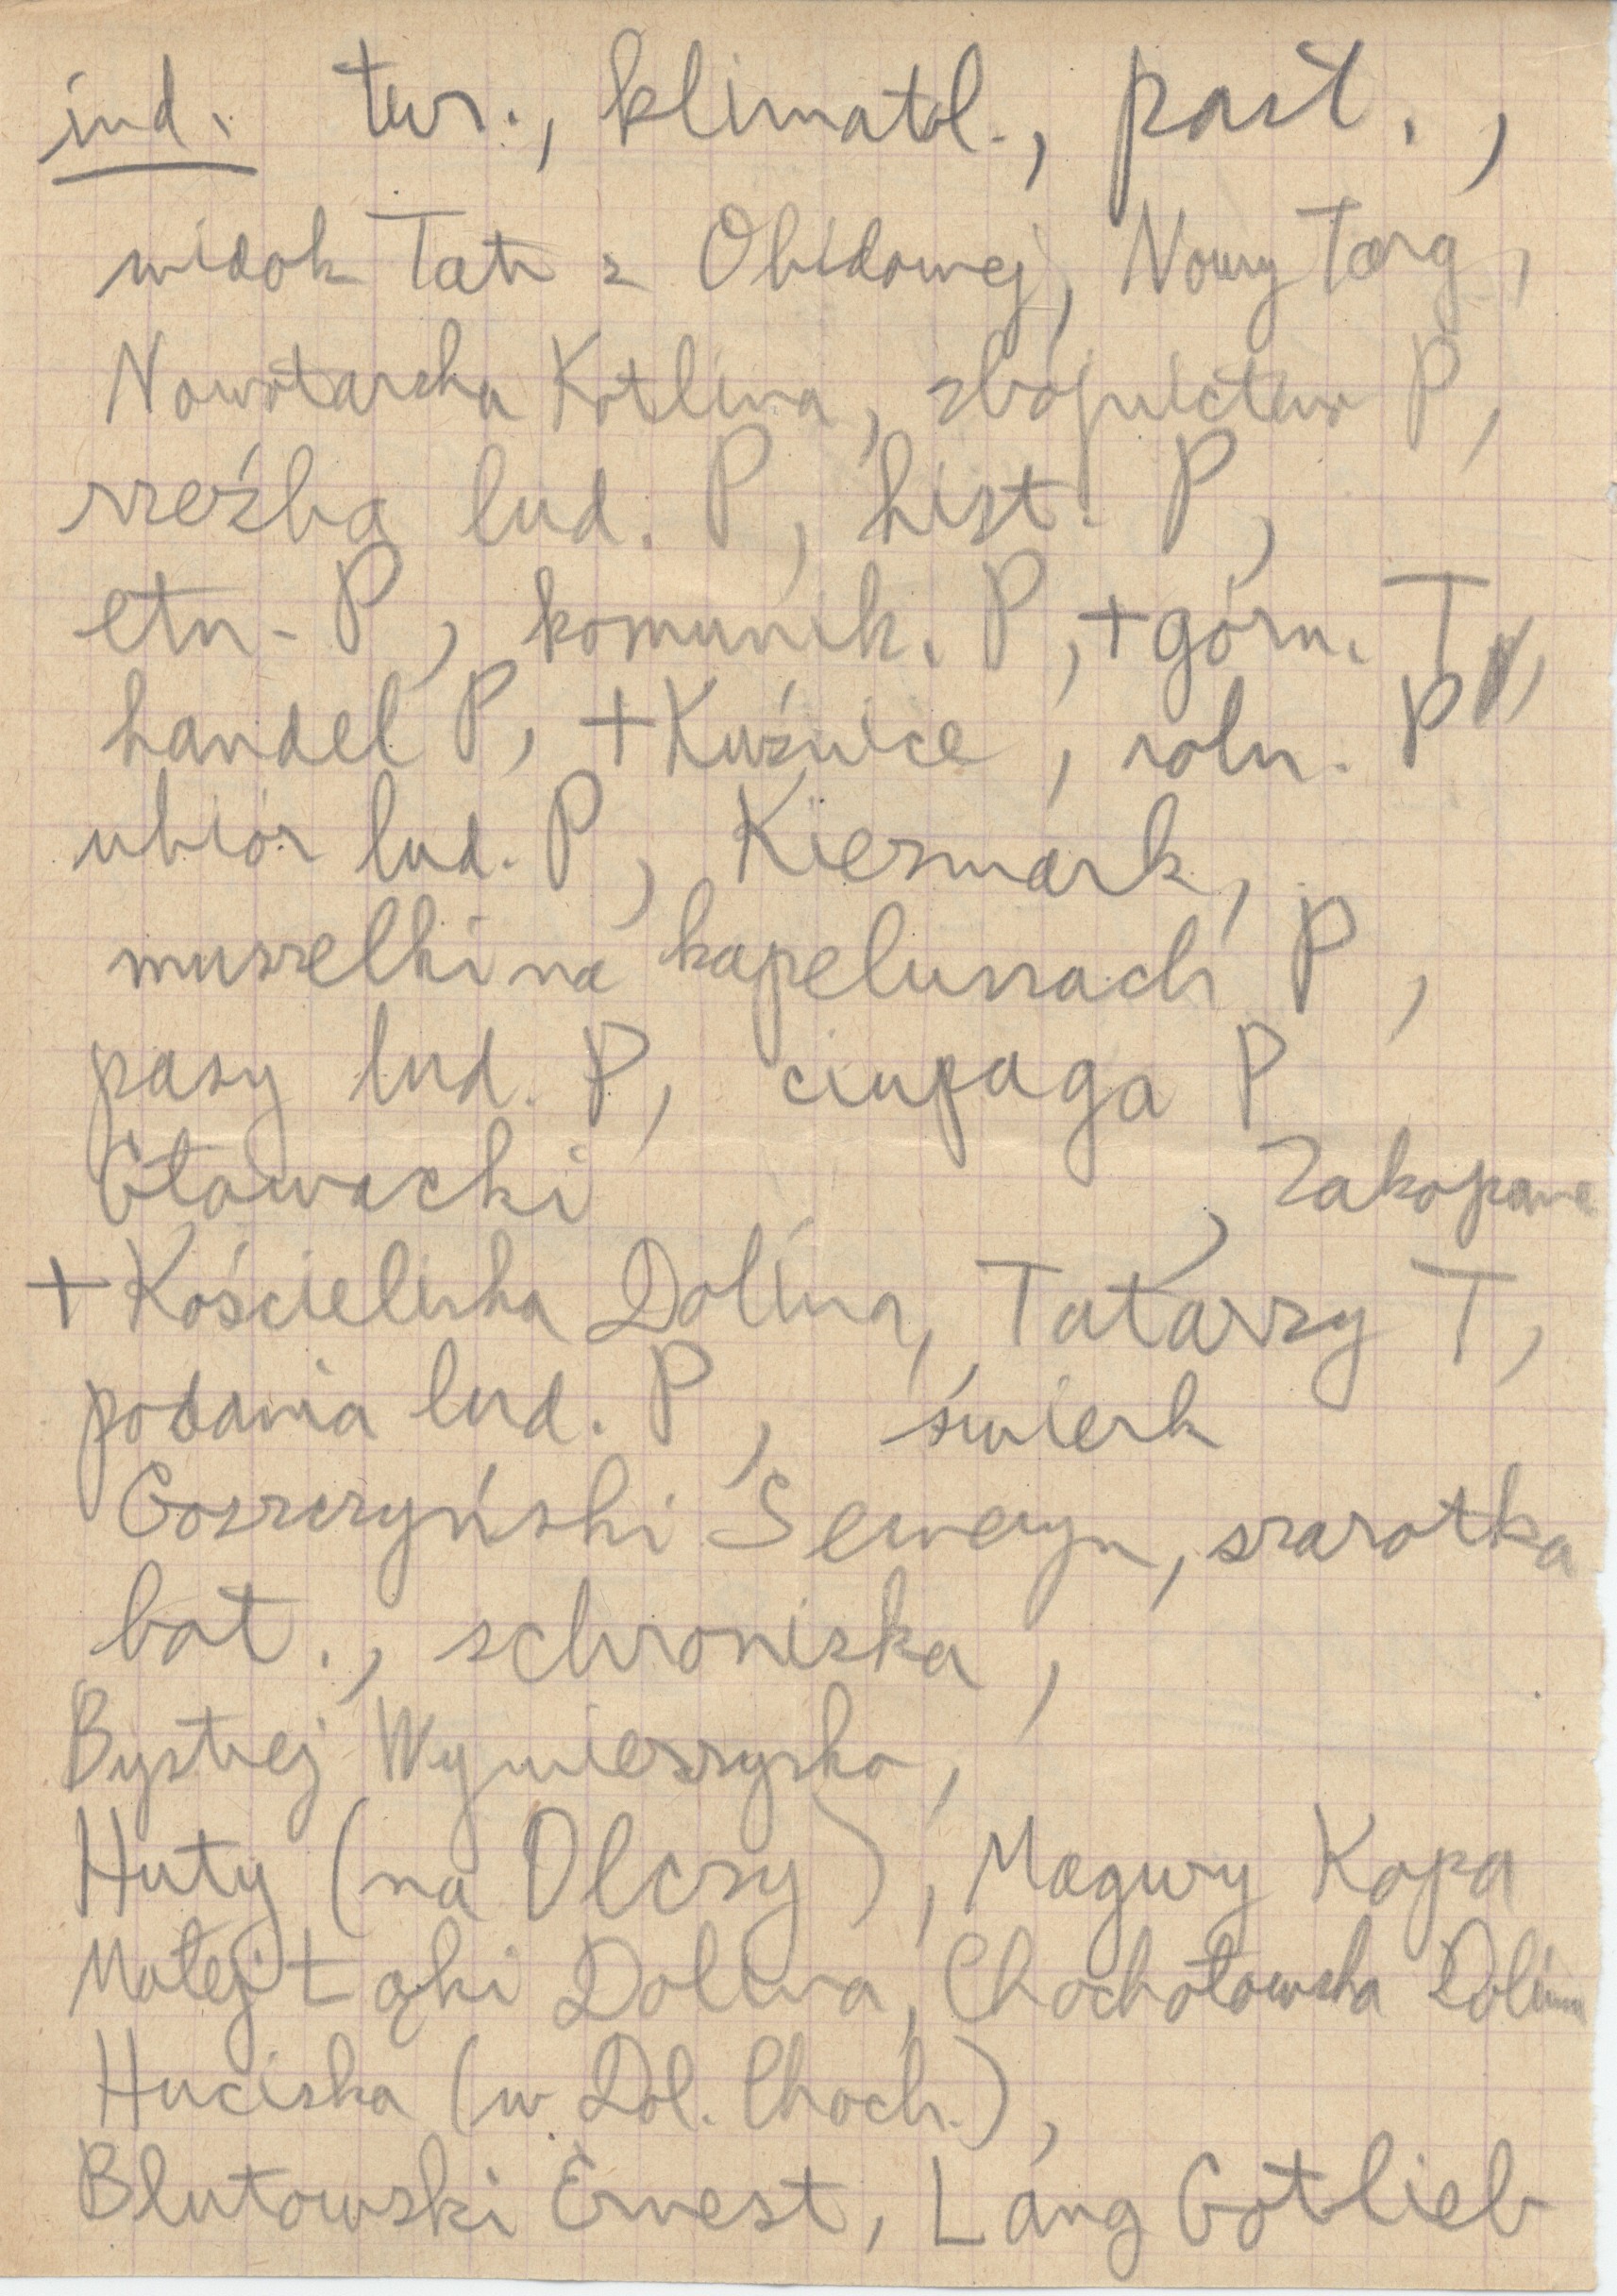 ind. tur., klimatol., past.,
widok Tatr z Obidowej, Nowy Targ,
Nowotarska Kotlina, zbójnictwo P,
rzeźba lud. P, hist. P,
etn. P, komunik. P, + górn. T,
handel P, + Kuźnice, roln. P
ubiór lud. P, Kiezmark,
muszelki na kapeluszach P,
pasy lud. P, ciupaga P
Głowacki, Zakopane
+ Kościeliska Dolina, Tatarzy T,
podania lud. P, świerk
Goszczyński Seweryn, szarotka
bot., schroniska,
Bystrej Wywierzyska,
Huty (na Olczy), Magury Kopa
Małej Łąki Dolina, Chochołowska Dolina
Huciska (w Dol. Choch.),
Blutowski Ernest, Lang Gotlieb